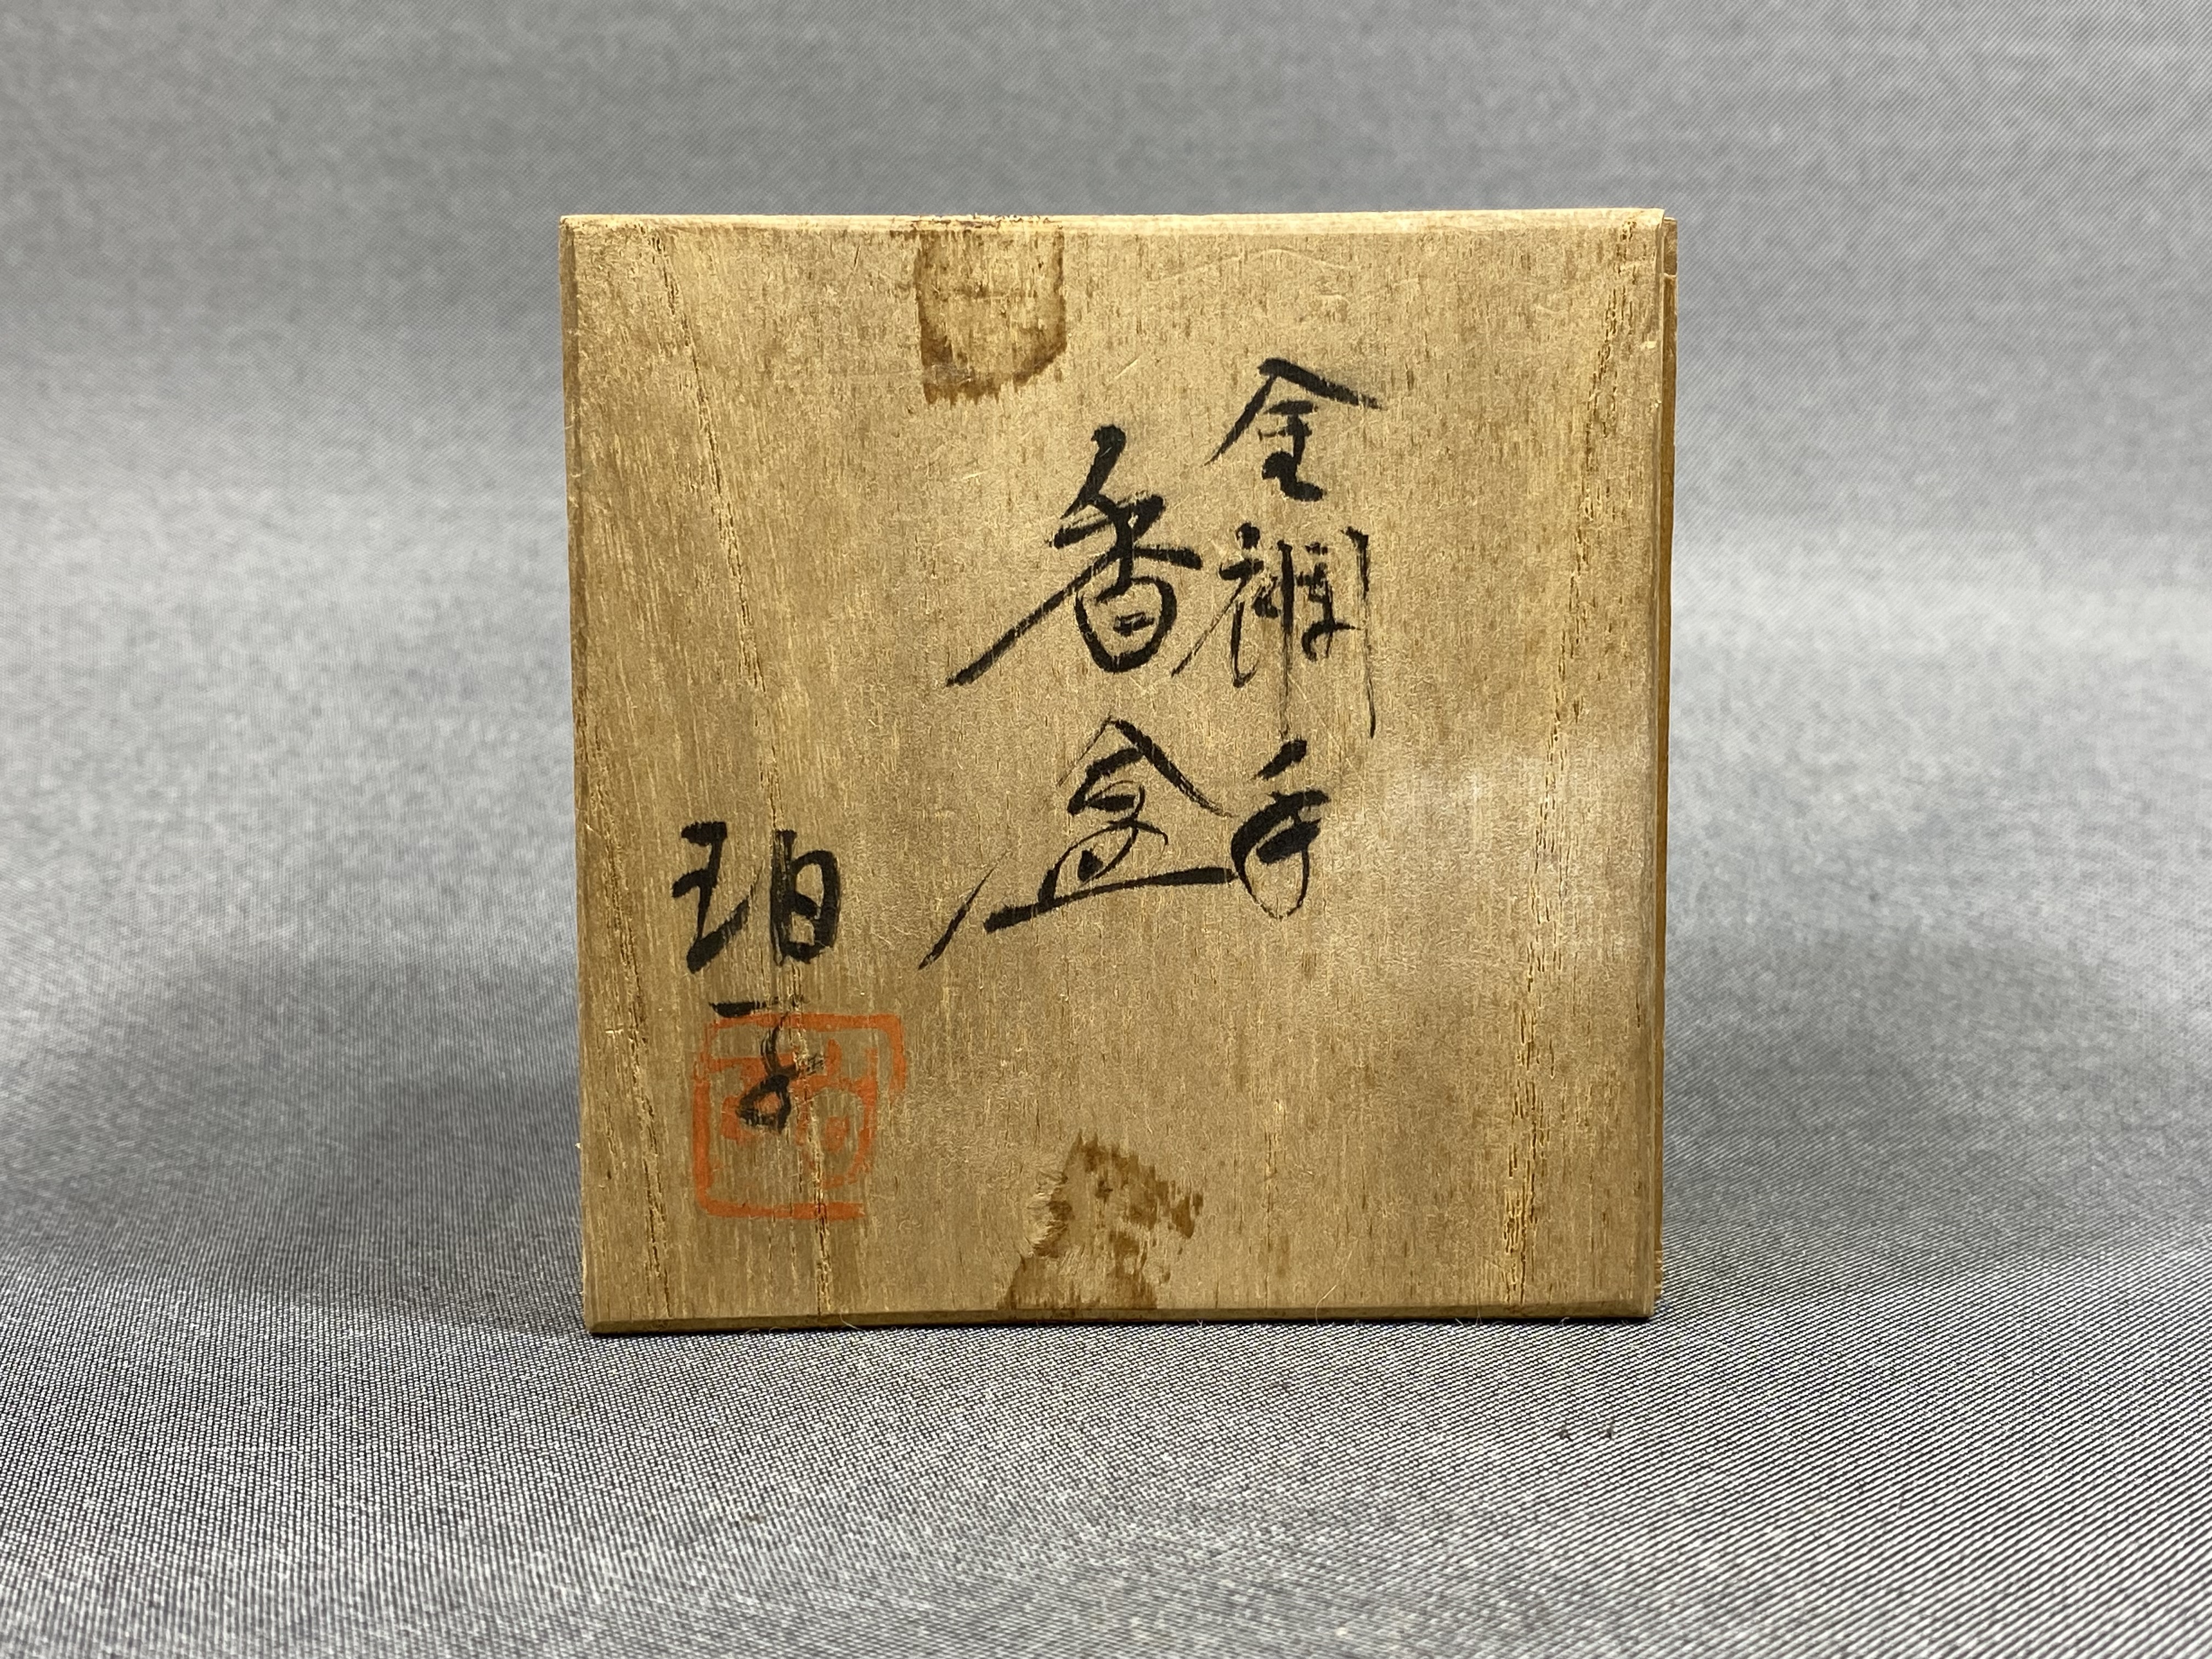 金襴手
香盒
珀